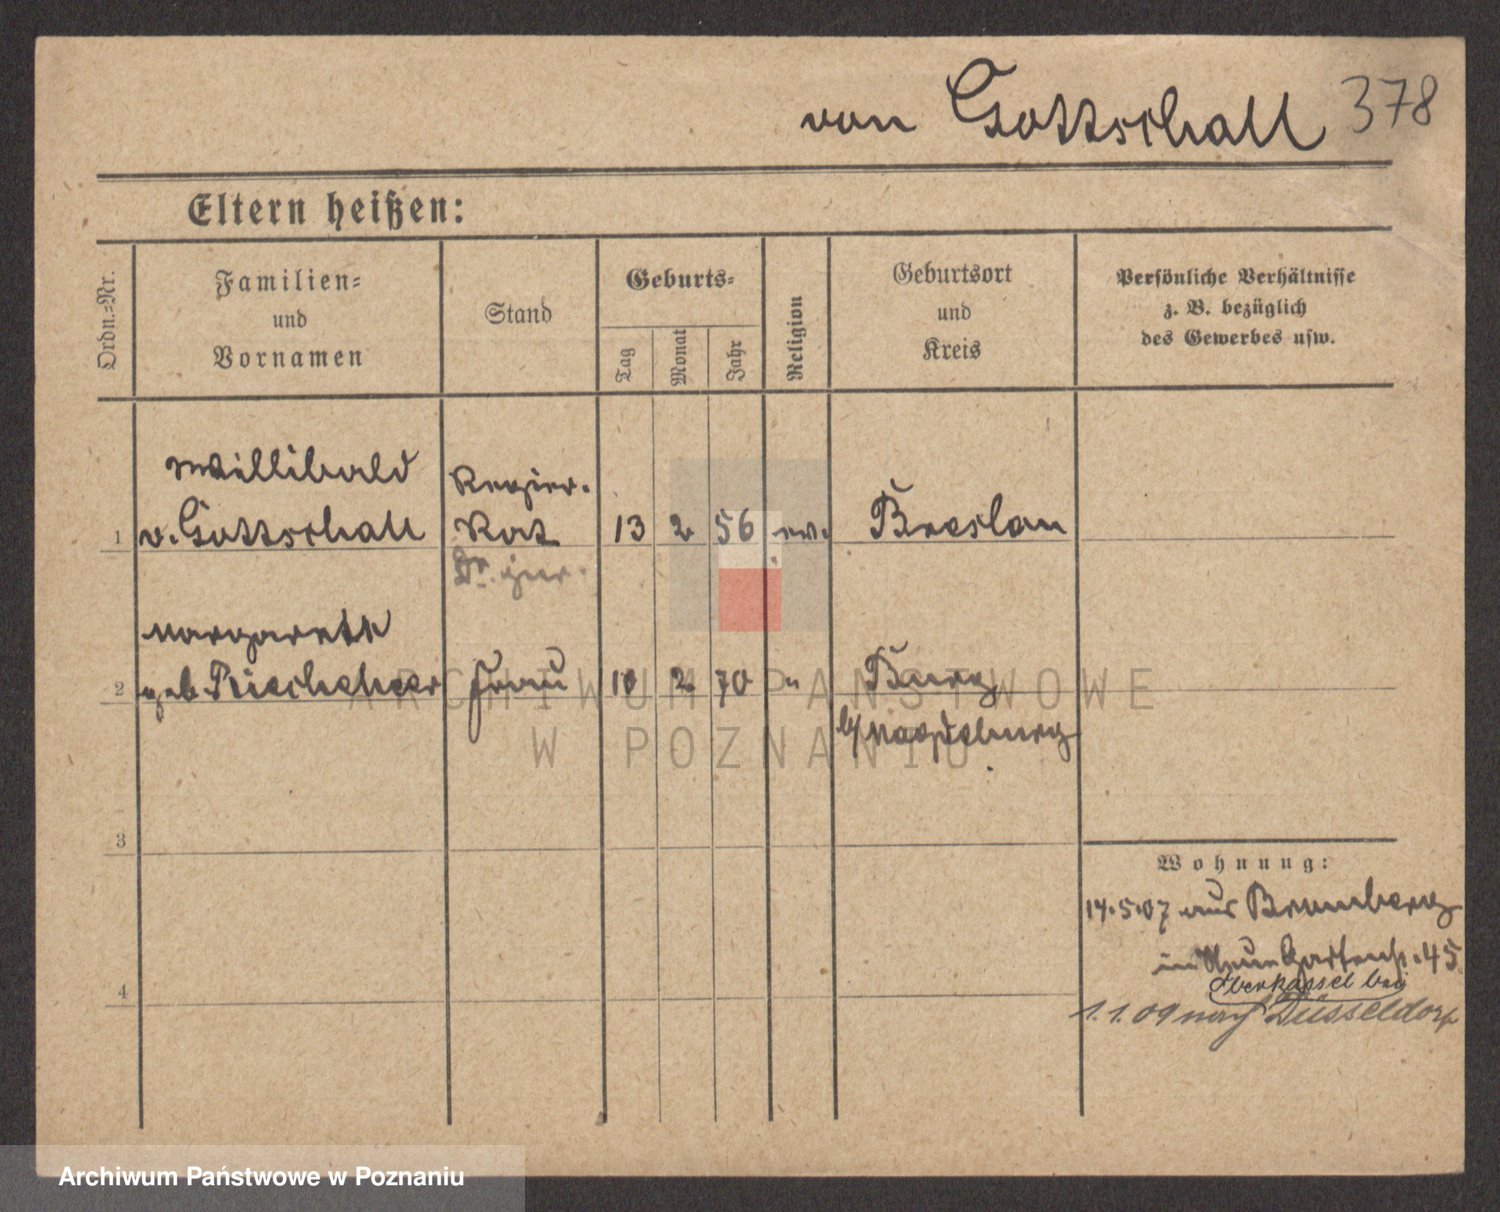 von Gottschall 378
Eltern heißen:
Ordn.=Nr.
Familien=
und
Vornamen
Stand
Geburts=
Tag
Monat
Jahr
Religion
Geburtsort
und
Kreis
Persönliche Verhältnisse
z. B. bezüglich
des Gewerbes usw.
Willibald
Regier.
1 v. Gottschall Rat 13 2 56 ev. Breslau
Dr. jur.
Margarete
2 geb. Frau 10 2 70 " Burg
b/ Magdeburg
3
Wohnung:
14.5.07 aus Bromberg
in Neue Gartenstr. 45
4
Oberkassel bei
1.1.09 nach Düsseldorf
ARCHIWUM PAŃSTWOWE
W POZNANIU
Archiwum Państwowe w Poznaniu